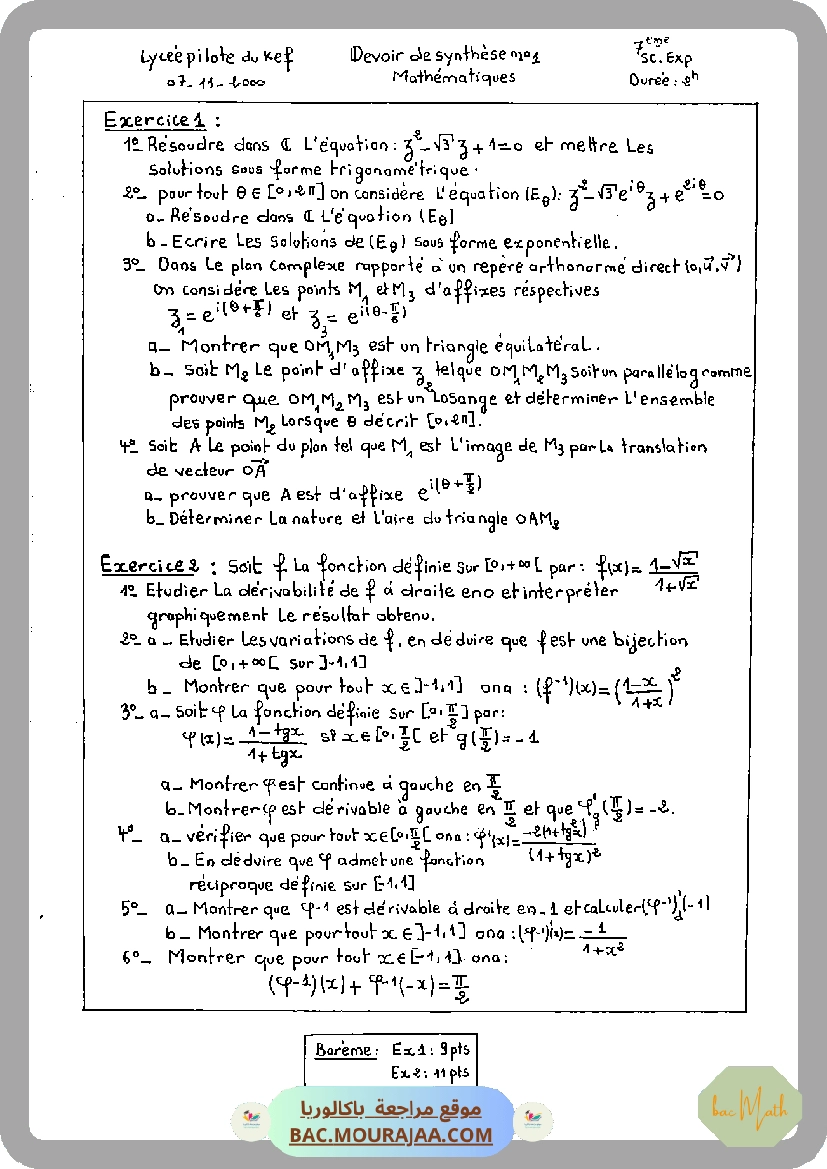 Lycée pilote du Kef
07_11_2000
Devoir de synthèse n°1
Mathématiques
7ème
Sc.Exp
Durée : 2h
Exercice 1 :
1°_ Résoudre dans ℂ L'équation : z²_√3 z + 1 = 0 et mettre Les
Solutions sous forme trigonométrique.
2°_ pour tout θ ∈ [0,2π] on considère L'équation (Eθ): z²_√3 e^{iθ} z + e^{2iθ} = 0
a_ Résoudre dans ℂ L'équation (Eθ)
b_ Ecrire Les Solutions de (Eθ) sous forme exponentielle.
3°_ Dans Le plan Complexe rapporté à un repère orthonormé direct (o,u⃗,v⃗)
on considére Les points M₁ et M₃ d'affixes réspectives
z₁ = e^{i(θ+π/6)} et z₃ = e^{i(θ-π/6)}
a_ Montrer que OM₁M₃ est un triangle équilatéral.
b_ Soit M₂ Le point d'affixe z₂ tel que OM₁M₂M₃ soit un parallélogramme
prouver que OM₁M₂M₃ est un Losange et déterminer L'ensemble
des points M₂ Lorsque θ décrit [0,2π].
4°_ Soit A Le point du plan tel que M₁ est L'image de M₃ par La translation
de vecteur OA⃗
a_ prouver que A est d'affixe e^{i(θ+π/2)}
b_ Déterminer La nature et L'aire du triangle OAM₂
Exercice 2 : Soit f La fonction définie sur [0,+∞[ par : f(x) = (1-√x)/(1+√x)
1°_ Etudier La dérivabilité de f à droite en 0 et interpréter
graphiquement Le résultat obtenu.
2°_ a_ Etudier Les variations de f, en déduire que f est une bijection
de [0,+∞[ sur ]-1,1]
b_ Montrer que pour tout x ∈ ]-1,1] on a : (f⁻¹)(x) = ((1-x)/(1+x))²
3°_ a_ Soit φ La fonction définie sur [0,π/2] par :
φ(x) = (1-tgx)/(1+tgx) si x ∈ [0,π/2[ et g(π/2) = -1
a_ Montrer φ est continue à gauche en π/2
b_ Montrer φ est dérivable à gauche en π/2 et que φ'g(π/2) = -2.
4°_ a_ vérifier que pour tout x ∈ [0,π/2[ on a : φ'(x) = -2(1+tg²x)/(1+tgx)²
b_ En déduire que φ admet une fonction
réciproque définie sur [-1,1]
5°_ a_ Montrer que φ-1 est dérivable à droite en -1 et calculer (φ-1)'d(-1)
b_ Montrer que pour tout x ∈ ]-1,1] on a : (φ-1)'(x) = -1/(1+x²)
6°_ Montrer que pour tout x ∈ [-1,1] on a :
(φ-1)(x) + φ-1(-x) = π/2
Barème : Ex 1 : 9 pts
Ex 2 : 11 pts
موقع مراجعة باكالوريا
BAC.MOURAJAA.COM
bac Math